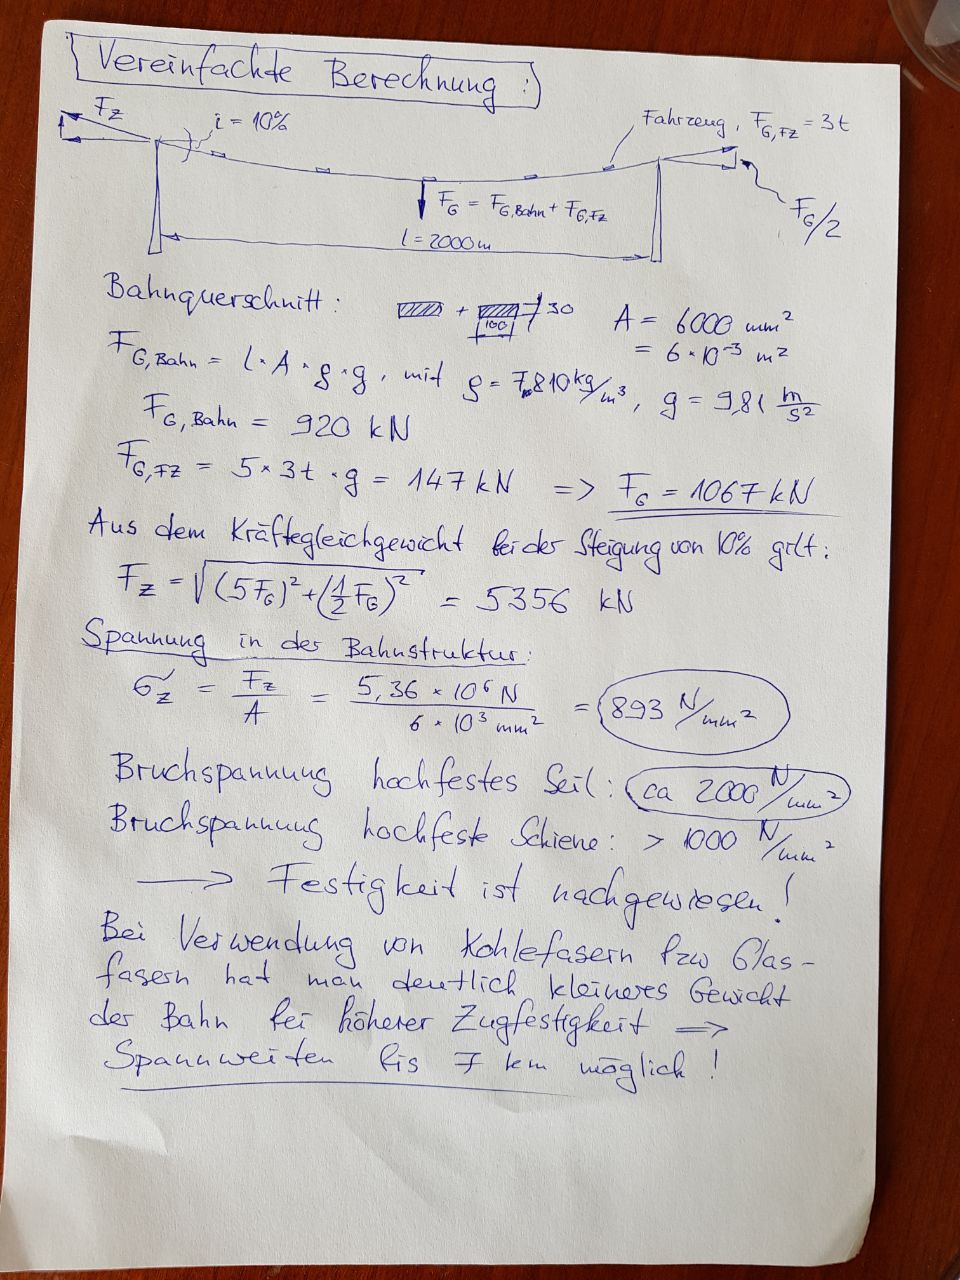 Vereinfachte Berechnung:
F_Z
i = 10%
Fahrzeug, F_G,FZ = 3t
F_G = F_G,Bahn + F_G,FZ
F_G/2
l = 2000m
Bahnquerschnitt: + 100 30 A = 6000 mm²
= 6 × 10⁻³ m²
F_G,Bahn = l · A · ρ · g, mit ρ = 7.810 kg/m³, g = 9,81 m/s²
F_G,Bahn = 920 kN
F_G,FZ = 5 × 3t · g = 147 kN => F_G = 1067 kN
Aus dem Kräftegleichgewicht bei der Steigung von 10% gilt:
F_Z = √((5F_G)² + (1/2 F_G)²) = 5356 kN
Spannung in der Bahnstruktur:
σ_Z = F_Z/A = 5,36 × 10⁶ N / 6 × 10³ mm² = 893 N/mm²
Bruchspannung hochfestes Seil: ca 2000 N/mm²
Bruchspannung hochfeste Schiene: > 1000 N/mm²
→ Festigkeit ist nachgewiesen!
Bei Verwendung von Kohlefasern bzw Glas-
fasern hat man deutlich kleineres Gewicht
der Bahn bei höherer Zugfestigkeit =>
Spannweiten bis 7 km möglich!